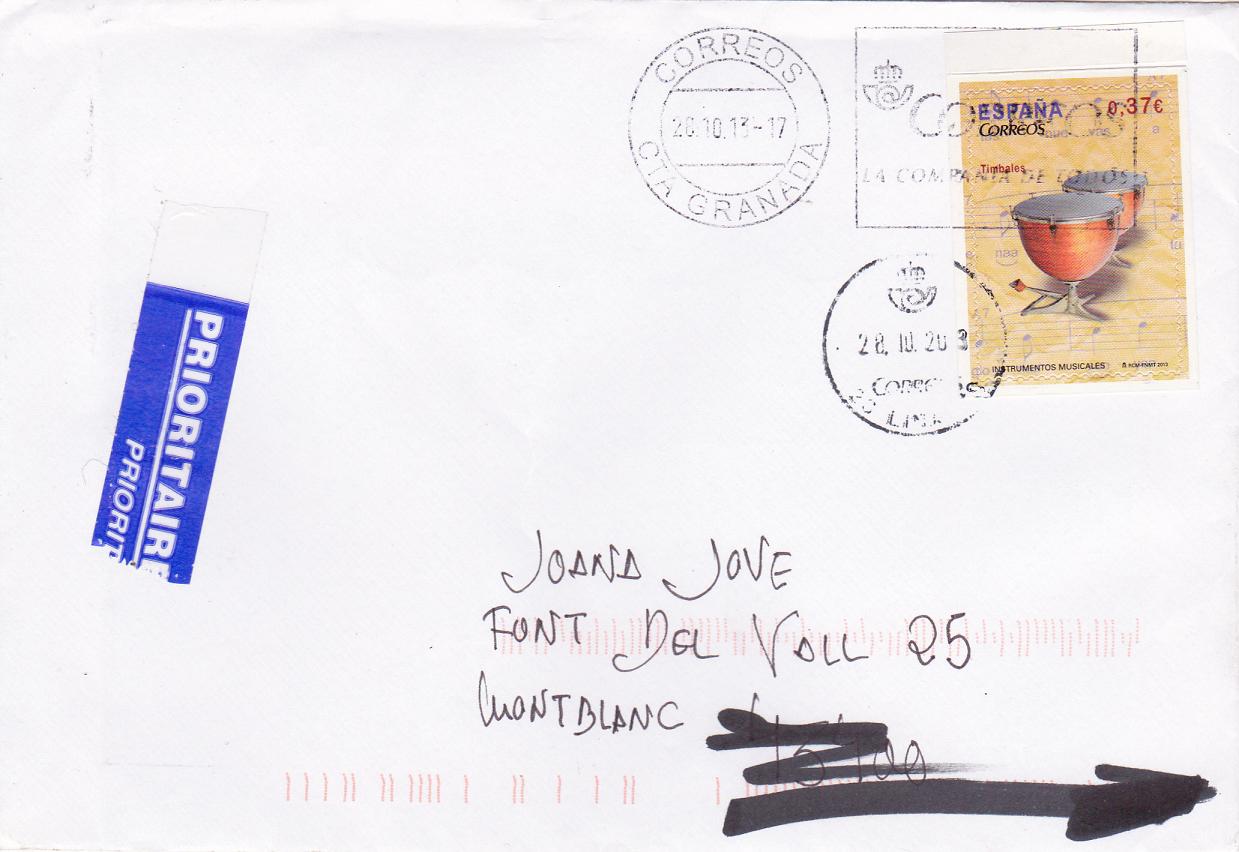 CORREOS
20.10.13-17
CTA GRANADA
CORREOS
LA COMPAÑIA DE TODOS
ESPAÑA 0,37€
CORREOS
Timbales
INSTRUMENTOS MUSICALES RCM-FNMT 2013
28.10.20 3
CORRE
PRIORITAIR
PRIORIT
JOANA JOVE
FONT DEL VALL 25
MONTBLANC